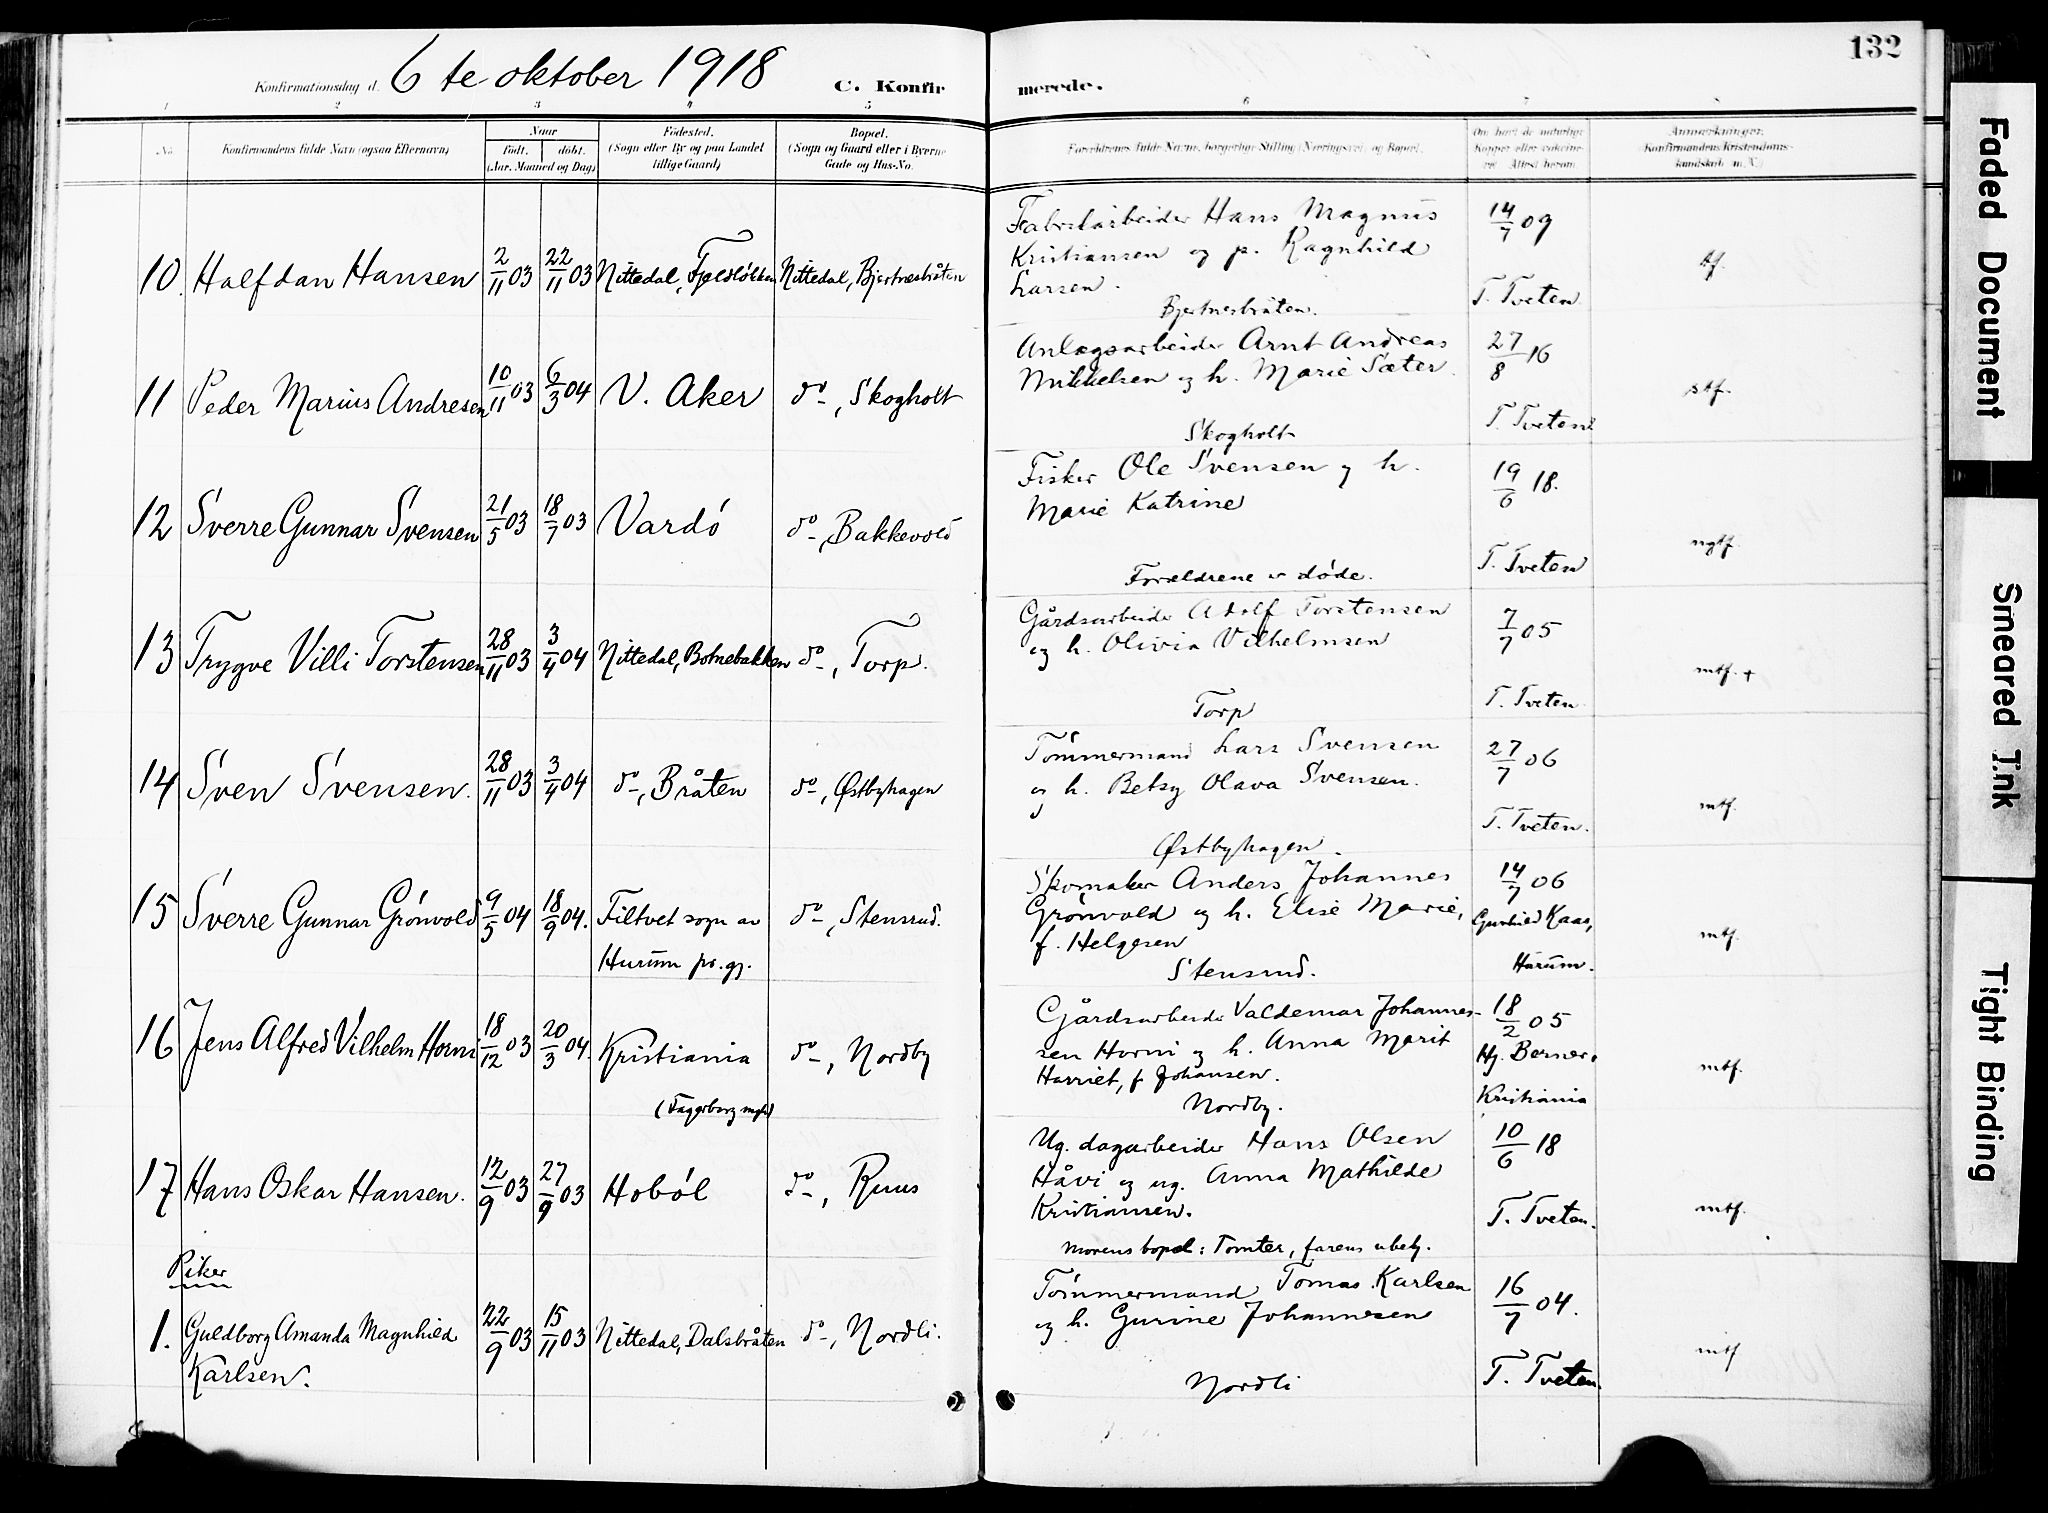 132
Konfirmationsdag d. 6 te oktober 1918 C. Konfirmerede.
1 2 3 4 5 6 7 8
No. Konfirmandens fulde Navn (ogsaa Efternavn) Naar Født. døbt. (Aar. Maaned og Dag) Fødested. (Sogn eller By og paa Landet tillige Gaard) Bopæl. (Sogn og Gaard eller i Byerne Gade og Hus-No. Forældrenes fulde Navne, borgerlige Stilling (Næringsvei) og Bopæl. Om havt de naturlige Kopper eller vaccineret. Attest herom. Anmærkninger. (Konfirmandens Kristendomskundskab m. V.)
10. Halfdan Hansen 2/11 03 22/11 03 Nittedal, Fjeldløkken Nittedal, Bjertnesbråten
Fabrikarbeider Hans Magnus
Kristiansen og p. Ragnhild
Larsen.
Bjertnesbråten.
14/7 09
T. Tveten
tf.
11 Peder Marius Andresen 10/11 03 6/3 04 V. Aker do, Skogholt
Anlægsarbeider Arnt Andreas
Mikkelsen og h. Marie Sæter.
Skogholt
27/8 16
T. Tveten
stf.
12 Sverre Gunnar Svensen 21/5 03 18/7 03 Vardø do, Bakkevold
Fisker Ole Svensen og h.
Marie Katrine
Forældrene er døde.
19/6 18.
T. Tveten
ngtf.
13 Trygve Villi Torstensen 28/11 03 3/4 04 Nittedal, Botnebakken do, Torp.
Gårdsarbeider Adolf Torstensen
og h. Olivia Vilhelmsen
Torp
7/7 05
T. Tveten
mtf. +
14 Sven Svensen. 28/11 03 3/4 04 do, Bråten do, Østbyhagen
Tømmermand Lars Svensen
og h. Betsy Olava Svensen.
Østbyhagen.
27/7 06
T. Tveten.
mtf.
15 Sverre Gunnar Grønvold 9/5 04 18/9 04. Filtvet sogn av do, Stensrud.
Hurum pr. gj.
Skomaker Anders Johannes
Grønvold og h. Elise Marie,
f. Helgesen
Stensrud.
14/7 06
Gunhild Kaas,
Hurum.
mtf.
16 Jens Alfred Vilhelm Horni 18/12 03 20/3 04. Kristiania do, Nordby
(Fagerborg mgh)
Gårdsarbeider Valdemar Johannes-
sen Horni og h. Anna Marit
Harriet, f. Johansen.
Nordby.
18/2 05
Hj. Berner.
Kristiania
mtf.
17 Hans Oskar Hansen. 12/9 03 27/9 03 Hobøl do, Ruus
Ug. dagarbeider Hans Olsen
Håvi og ug. Anna Mathilde
Kristiansen.
Morens bopel: Tomter, farens ubekj.
10/6 18
T. Tveten.
mtf.
Piker
1. Guldborg Amanda Magnhild 22/9 03 15/11 03 Nittedal, Dalsbråten do, Nordli.
Karlsen.
Tømmermand Tomas Karlsen
og h. Gurine Johannesen
Nordli
16/7 04.
T. Tveten.
mtf
Faded Document
Smeared Ink
Tight Binding